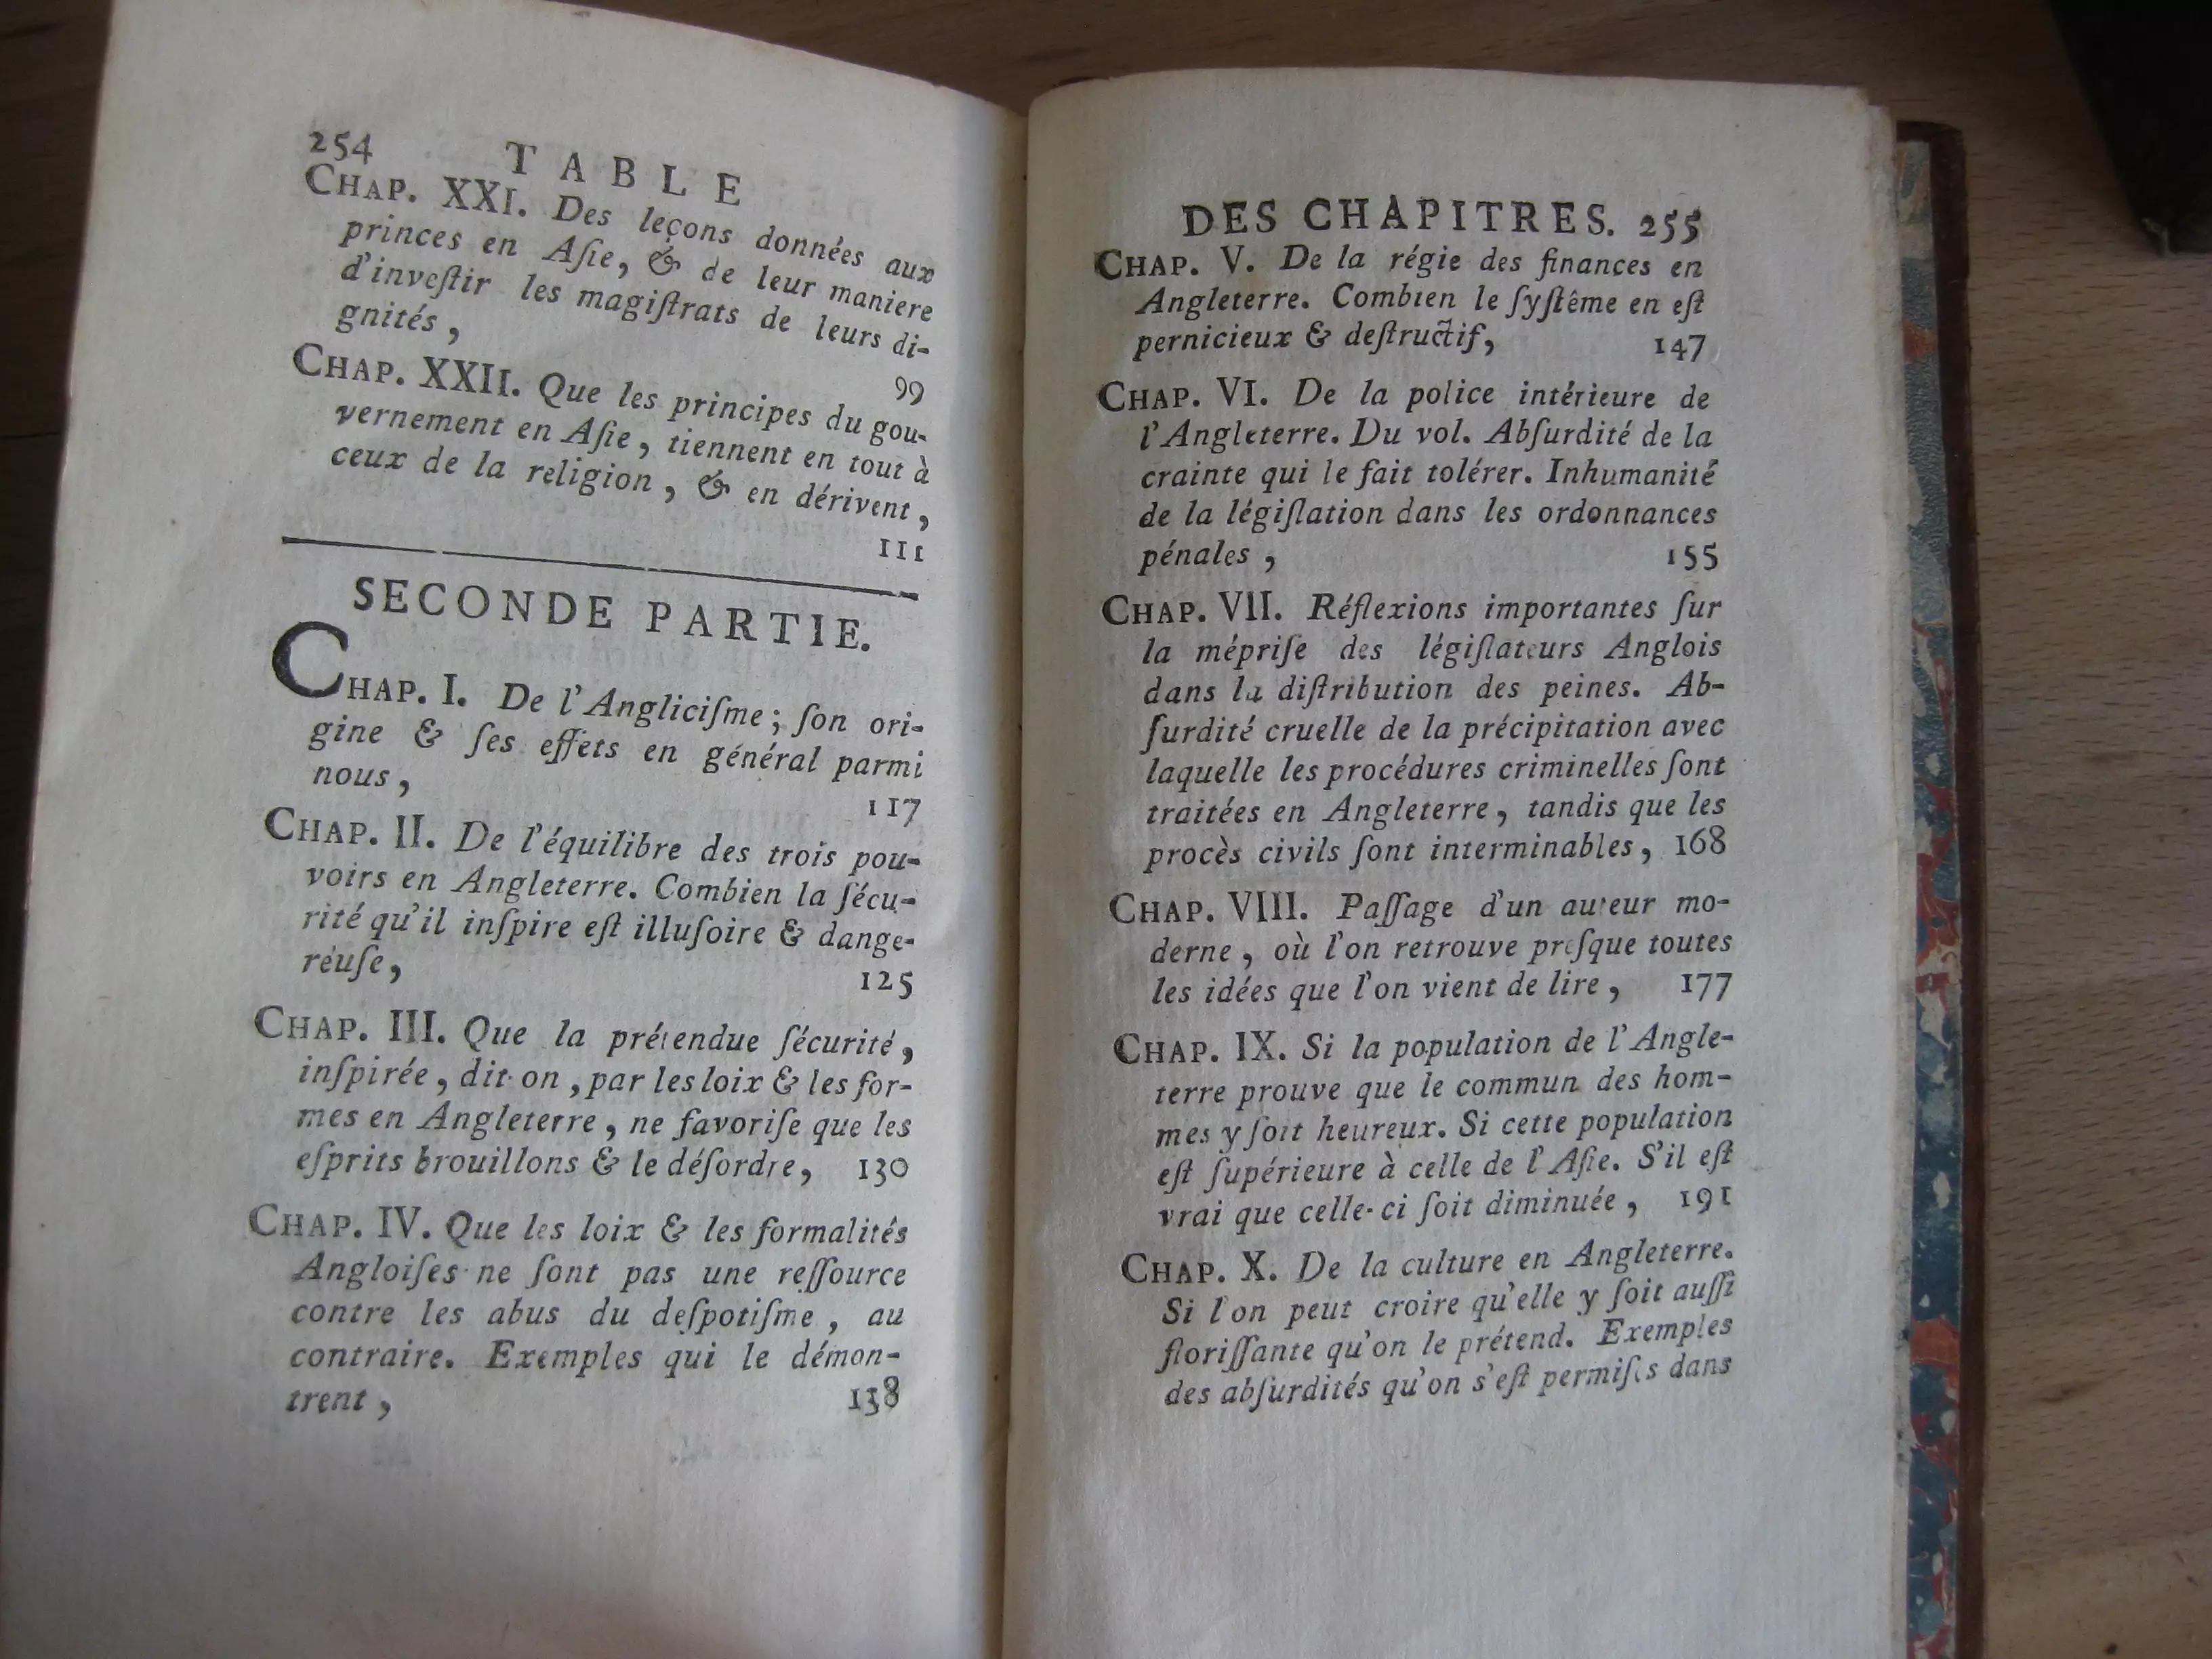 254 TABLE
CHAP. XXI. Des leçons données aux
princes en Aſie, & de leur maniere
d'inveſtir les magiſtrats de leurs di-
gnités, 99
CHAP. XXII. Que les principes du gou-
vernement en Aſie, tiennent en tout à
ceux de la religion, & en dérivent,
111
SECONDE PARTIE.
CHAP. I. De l'Angliciſme; ſon ori-
gine & ſes effets en général parmi
nous, 117
CHAP. II. De l'équilibre des trois pou-
voirs en Angleterre. Combien la ſécu-
rité qu'il inſpire eſt illuſoire & dange-
réuſe, 125
CHAP. III. Que la prétendue ſécurité,
inſpirée, dit-on, par les loix & les for-
mes en Angleterre, ne favoriſe que les
eſprits brouillons & le déſordre, 130
CHAP. IV. Que les loix & les formalités
Angloiſes ne ſont pas une reſſource
contre les abus du deſpotiſme, au
contraire. Exemples qui le démon-
trent, 138
DES CHAPITRES. 255
CHAP. V. De la régie des finances en
Angleterre. Combien le ſyſtême en eſt
pernicieux & deſtructif, 147
CHAP. VI. De la police intérieure de
l'Angleterre. Du vol. Abſurdité de la
crainte qui le fait tolérer. Inhumanité
de la légiſlation dans les ordonnances
pénales, 155
CHAP. VII. Réflexions importantes ſur
la mépriſe des légiſlateurs Anglois
dans la diſtribution des peines. Ab-
ſurdité cruelle de la précipitation avec
laquelle les procédures criminelles ſont
traitées en Angleterre, tandis que les
procès civils ſont interminables, 168
CHAP. VIII. Paſſage d'un auteur mo-
derne, où l'on retrouve preſque toutes
les idées que l'on vient de lire, 177
CHAP. IX. Si la population de l'Angle-
terre prouve que le commun des hom-
mes y ſoit heureux. Si cette population
eſt ſupérieure à celle de l'Aſie. S'il eſt
vrai que celle-ci ſoit diminuée, 191
CHAP. X. De la culture en Angleterre.
Si l'on peut croire qu'elle y ſoit auſſi
floriſſante qu'on le prétend. Exemples
des abſurdités qu'on s'eſt permiſes dans